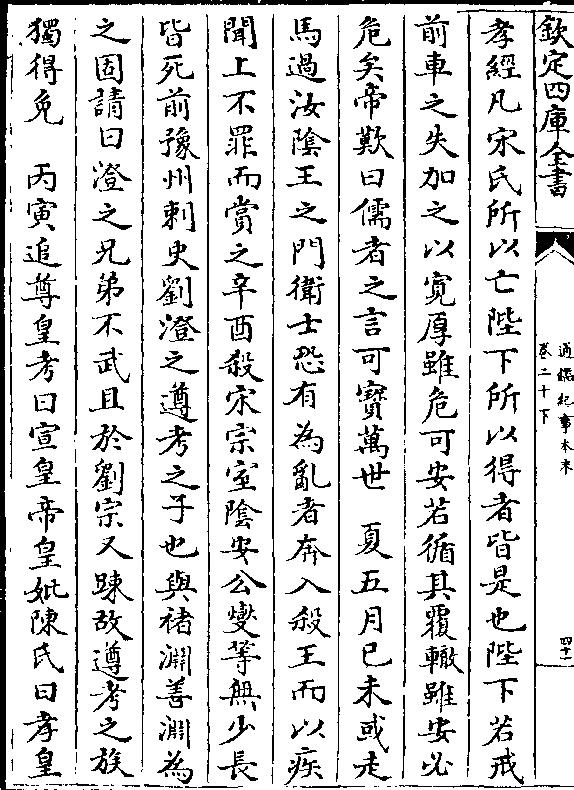 欽定四庫全書
通鑑紀事本末
卷二十下
四十一
孝經凡宋氏所以亡陛下所以得者皆是也陛下若戒
前車之失加之以寛厚雖危可安若循其覆轍雖安必
危矣帝歎曰儒者之言可寳萬世　夏五月己未或走
馬過汝隂王之門衛士恐有為亂者奔入殺王而以疾
聞上不罪而賞之辛酉殺宋宗室隂安公燮等無少長
皆死前豫州刺史劉澄之遵考之子也與禇淵善淵為
之固請曰澄之兄弟不武且於劉宗又踈故遵考之族
獨得免　丙寅追尊皇考曰宣皇帝皇妣陳氏曰孝皇